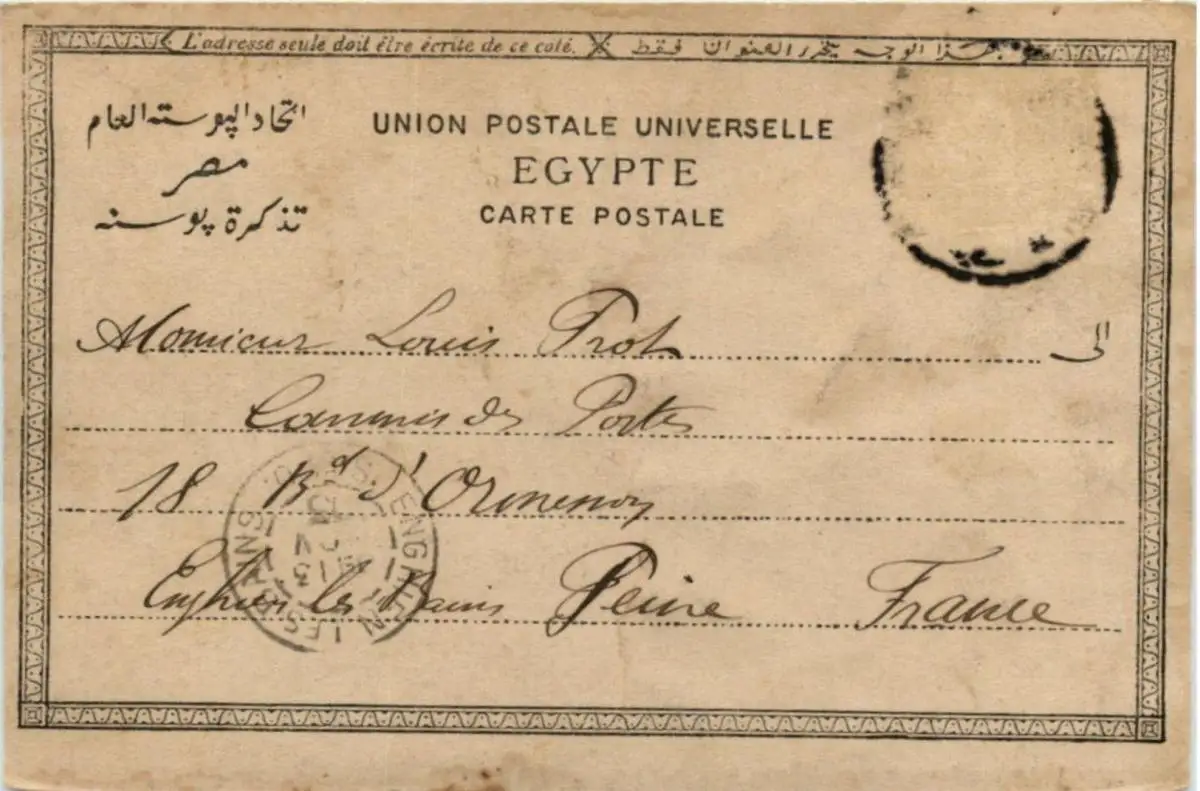 L'adresse seule doit être écrite de ce coté. هذا الوجه يحرر العنوان فقط
اتحاد الپوسته العام
مصر
تذكرة پوسته
UNION POSTALE UNIVERSELLE
EGYPTE
CARTE POSTALE
Monsieur Louis Prot
الى
Commis des Postes
18 Bd d'Ormesson
Enghien les Bains Seine France
ENGHIEN LES BAINS